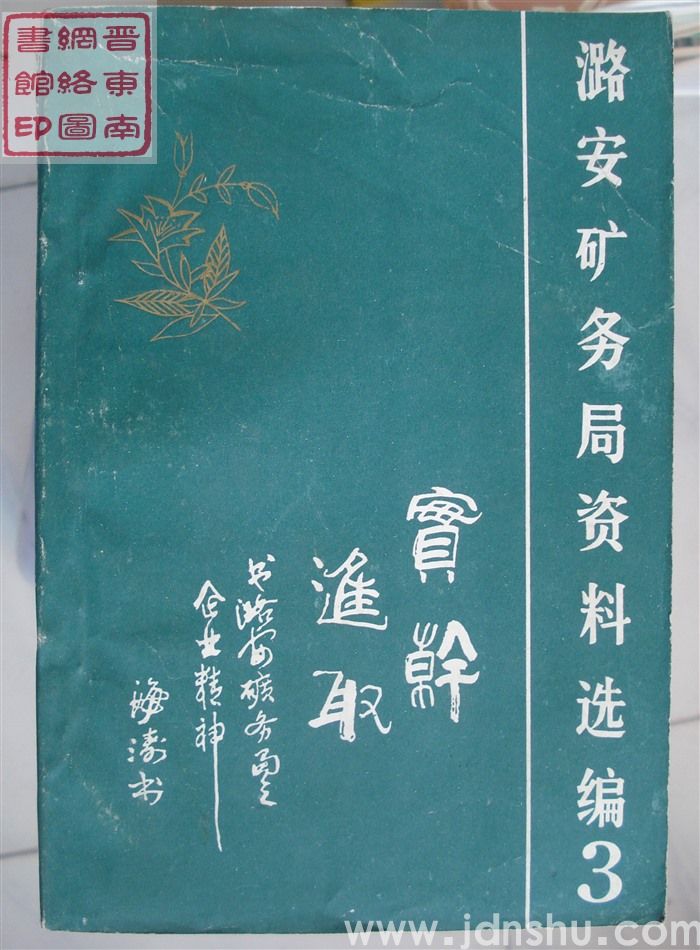 晋東南
網絡圖
書館印
潞安矿务局资料选编3
實幹
進取
书潞安礦务局
企业精神
海涛书
www.jdnshu.com